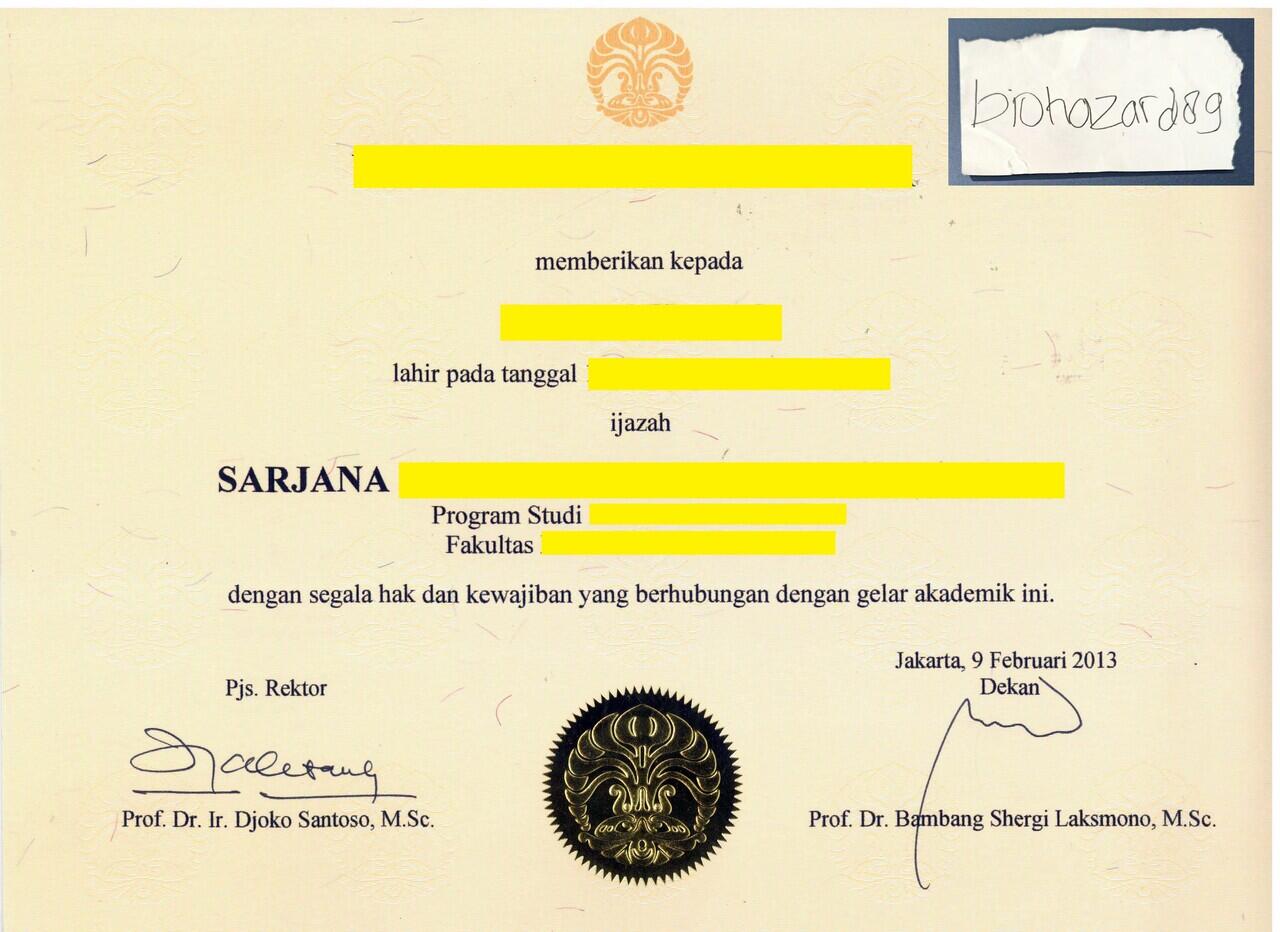 biohazard89
memberikan kepada
lahir pada tanggal
ijazah
SARJANA
Program Studi
Fakultas
dengan segala hak dan kewajiban yang berhubungan dengan gelar akademik ini.
Jakarta, 9 Februari 2013
Pjs. Rektor
Dekan
Prof. Dr. Ir. Djoko Santoso, M.Sc.
Prof. Dr. Bambang Shergi Laksmono, M.Sc.